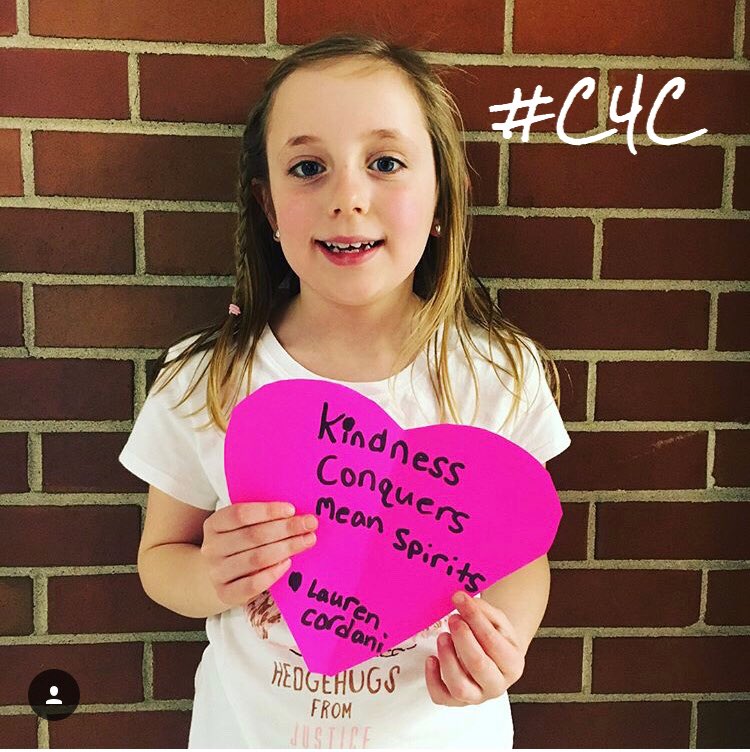 #C4C
Kindness
Conquers
Mean Spirits
Lauren
Cordani
HEDGEHUGS
FROM
JUSTICE